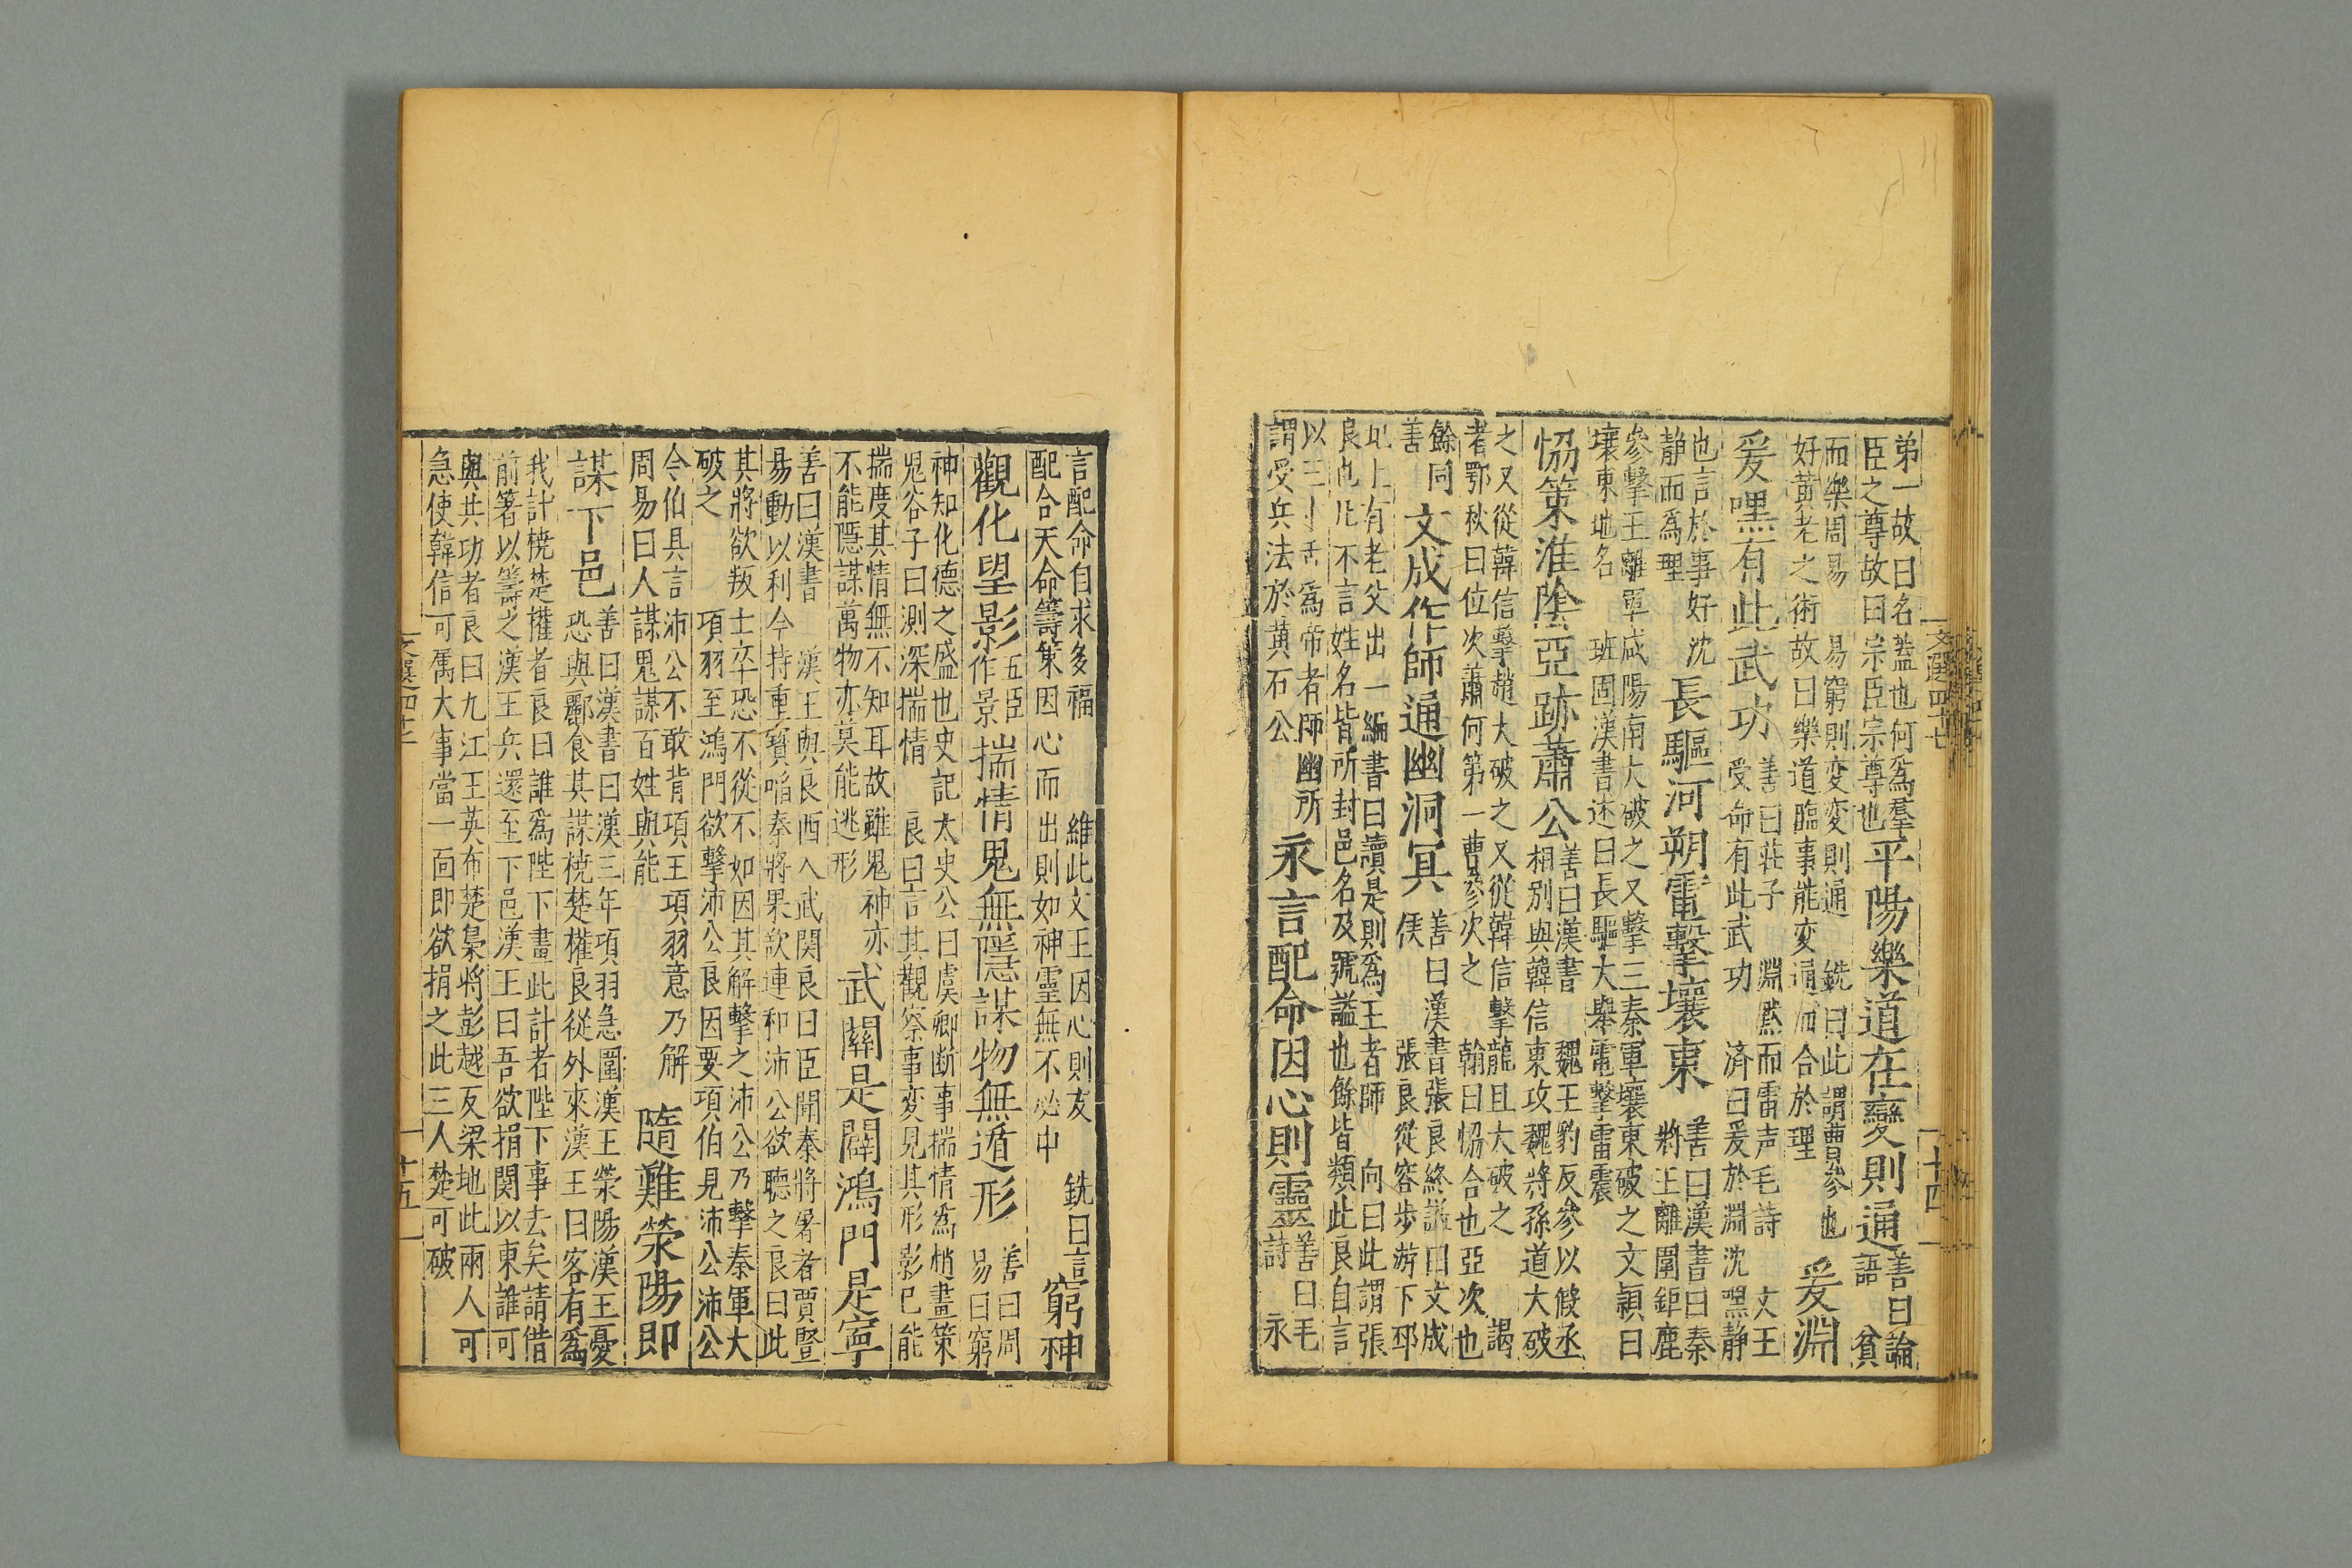 弟一故曰名蓋也何爲羣
臣之尊故曰宗臣宗尊也
平陽樂道在變則通
善曰論
語 貧
而樂周易 易窮則変変則通 銑曰此謂曹參也
好黄老之術故曰樂道臨事能変通而合於理
爰淵
爰嘿有此武功
善曰莊子 淵黙而雷声毛詩 文王
受命有此武功 済曰爰於淵沈嘿静
也言於事好沈
静而爲理
長驅河朔電擊壤東
善曰漢書曰秦
將王離圍鉅鹿
參擊王離軍成陽南大破之又擊三秦軍壤東破之文穎曰
壤東地名 班固漢書述曰長驅大舉電擊雷震
恊策淮陰亞跡蕭公
善曰漢書 魏王豹反參以假丞
相別與韓信東攻魏將孫道大破
之又從韓信擊趙大破之又從韓信擊龍且大破之 謁
者鄂秋曰位次蕭何第一曹參次之 翰曰恊合也亞次也
餘同
善
文成作師通幽洞冥
善曰漢書張良終謚曰文成
侯 張良從容步游下邳
圯上有老父出一編書曰讀是則爲王者師 向曰此謂張
良也此不言姓名皆所封邑名及號謚也餘皆類此良自言
以三寸舌爲帝者師幽所
謂受兵法於黄石公
永言配命因心則靈
善曰毛
詩 永
言配命自求多福 維此文王因心則友 銑曰言
配合天命籌策因心而出則如神靈無不必中
窮神
觀化望影
五臣
作景
揣情鬼無隱謀物無遁形
善曰周
易曰窮
神知化德之盛也史記太史公曰虞卿断事揣情爲趙畫策
鬼谷子曰測深揣情 良曰言其觀察事変見其形影已能
揣度其情無不知耳故雖鬼神亦
不能隱謀萬物亦莫能逃形
武關是闢鴻門是寧
善曰漢書 漢王與良西入武関良曰臣聞秦將屠者賈豎
易動以利今持重寳啗秦將果欲連和沛公欲聽之良曰此
其將欲叛士卒恐不從不如因其解擊之沛公乃擊秦軍大
破之 項羽至鴻門欲擊沛公良因要項伯見沛公沛公
令伯具言沛公不敢背項王項羽意乃解
周易曰人謀鬼謀百姓與能
隨難滎陽即
謀下邑
善曰漢書曰漢三年項羽急圍漢王滎陽漢王憂
恐與酈食其謀橈楚權良從外來漢王曰客有爲
我計橈楚權者良曰誰爲陛下畫此計者陛下事去矣請借
前箸以籌之漢王兵還至下邑漢王曰吾欲捐関以東誰可
與共功者良曰九江王英布楚梟將彭越反梁地此兩人可
急使韓信可属大事當一面即欲捐之此三人楚可破
文選四十七
十四
十五